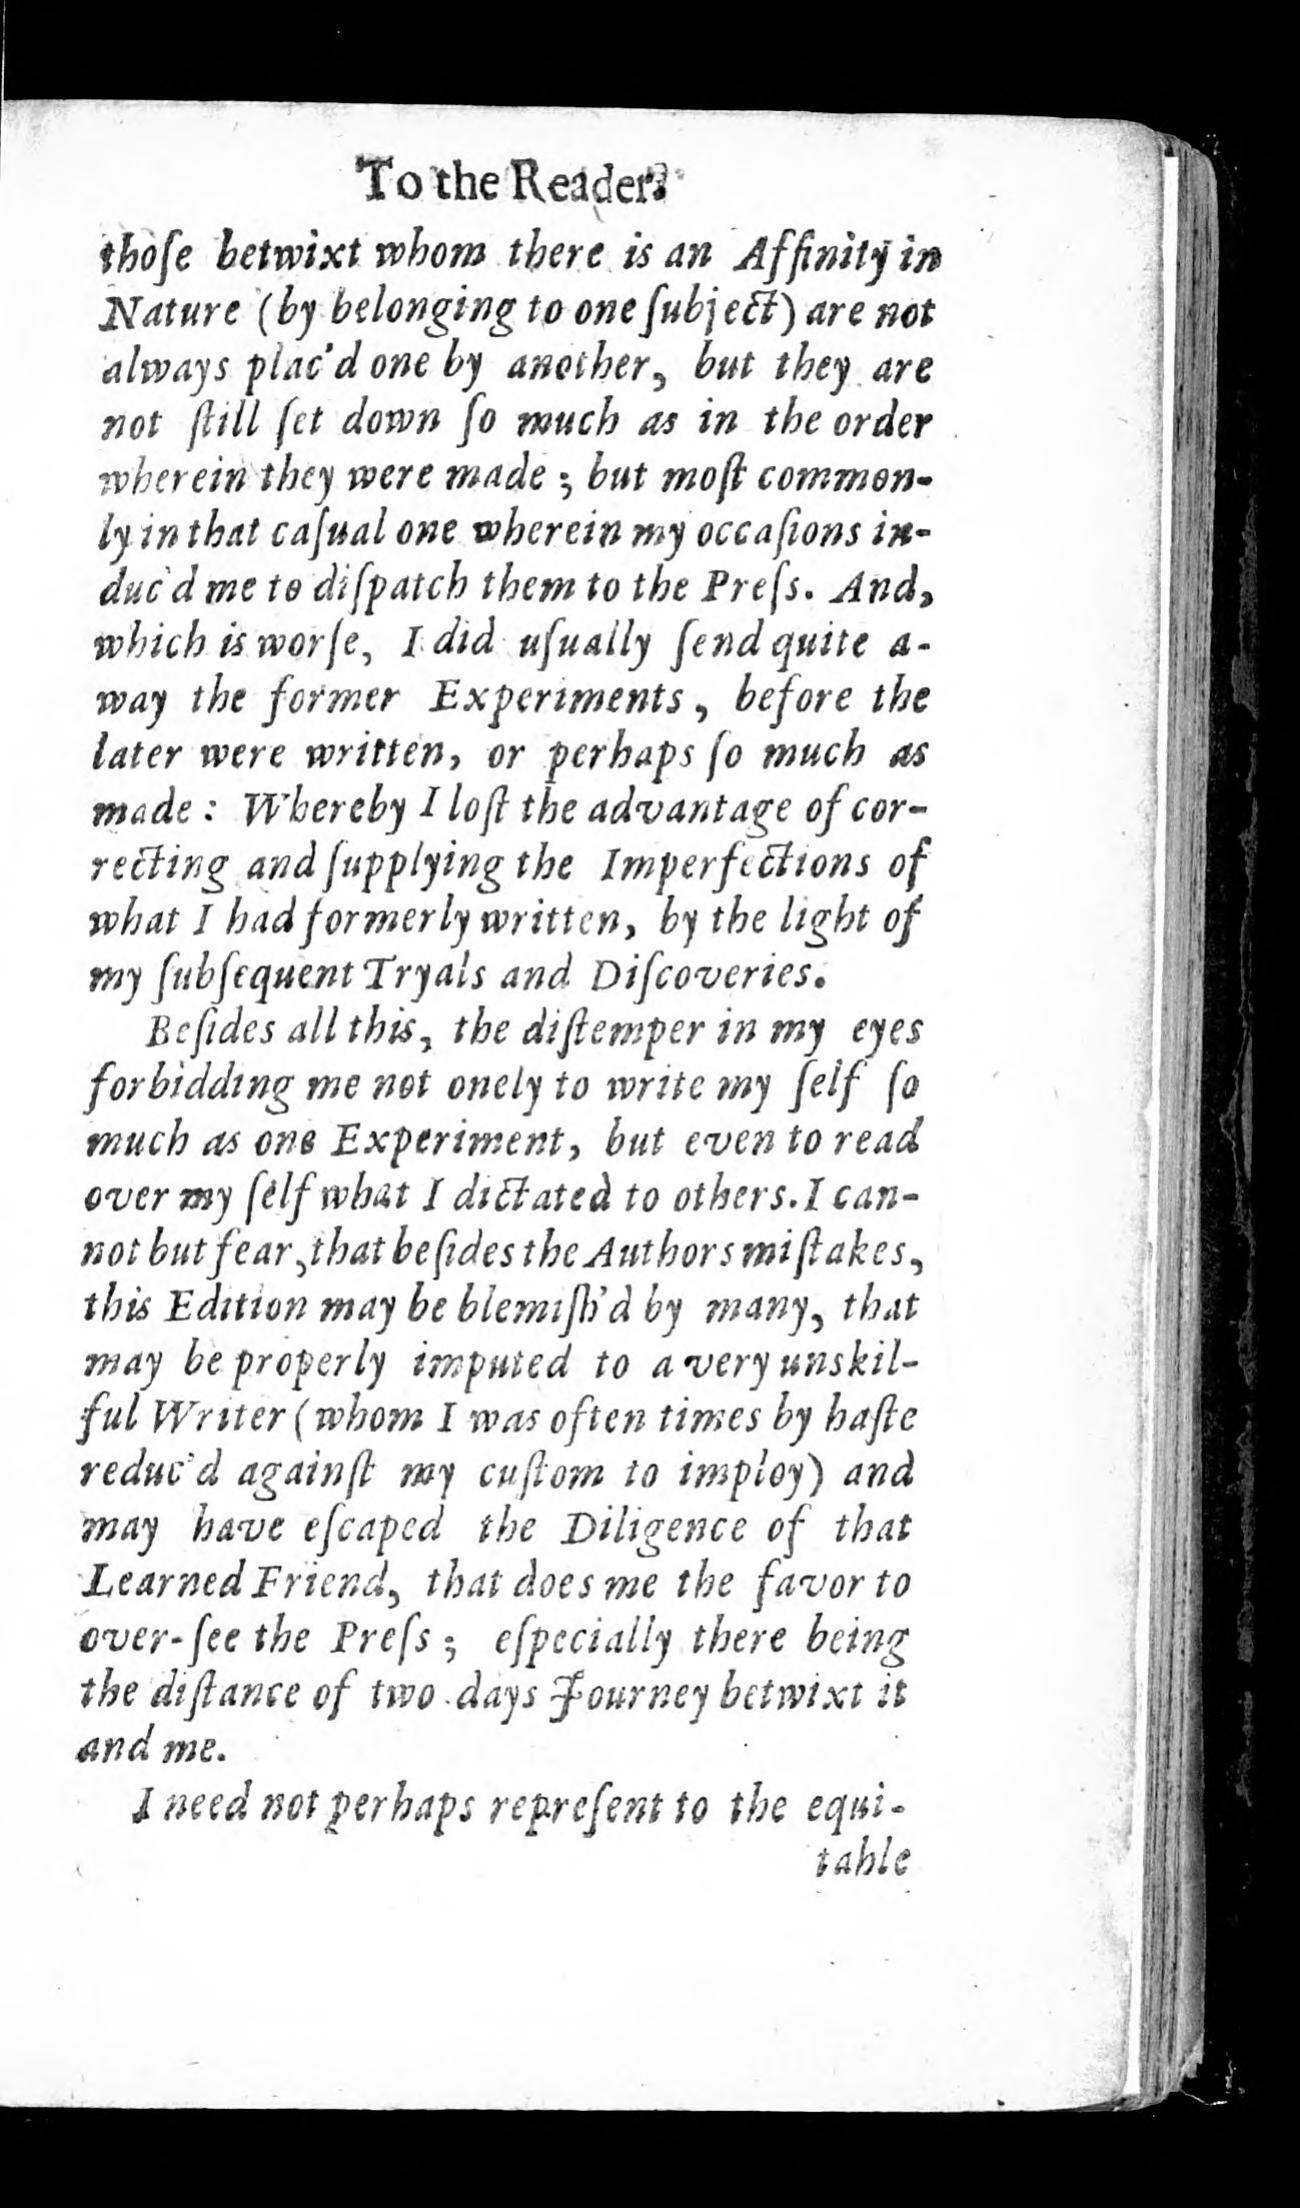 To the Reader.
thoſe betwixt whom there is an Affinity in
Nature (by belonging to one ſubject) are not
always plac'd one by another, but they are
not ſtill ſet down ſo much as in the order
wherein they were made; but moſt common-
ly in that caſual one wherein my occaſions in-
duc'd me to diſpatch them to the Preſs. And,
which is worſe, I did uſually ſend quite a-
way the former Experiments, before the
later were written, or perhaps ſo much as
made: Whereby I loſt the advantage of cor-
recting and ſupplying the Imperfections of
what I had formerly written, by the light of
my ſubſequent Tryals and Diſcoveries.
Beſides all this, the diſtemper in my eyes
forbidding me not onely to write my ſelf ſo
much as one Experiment, but even to read
over my ſelf what I dictated to others. I can-
not but fear, that beſides the Authors miſtakes,
this Edition may be blemiſh'd by many, that
may be properly imputed to a very unskil-
ful Writer (whom I was often times by haſte
reduc'd againſt my cuſtom to imploy) and
may have eſcaped the Diligence of that
Learned Friend, that does me the favor to
over-ſee the Preſs; eſpecially there being
the diſtance of two days Journey betwixt it
and me.
I need not perhaps repreſent to the equi-
table